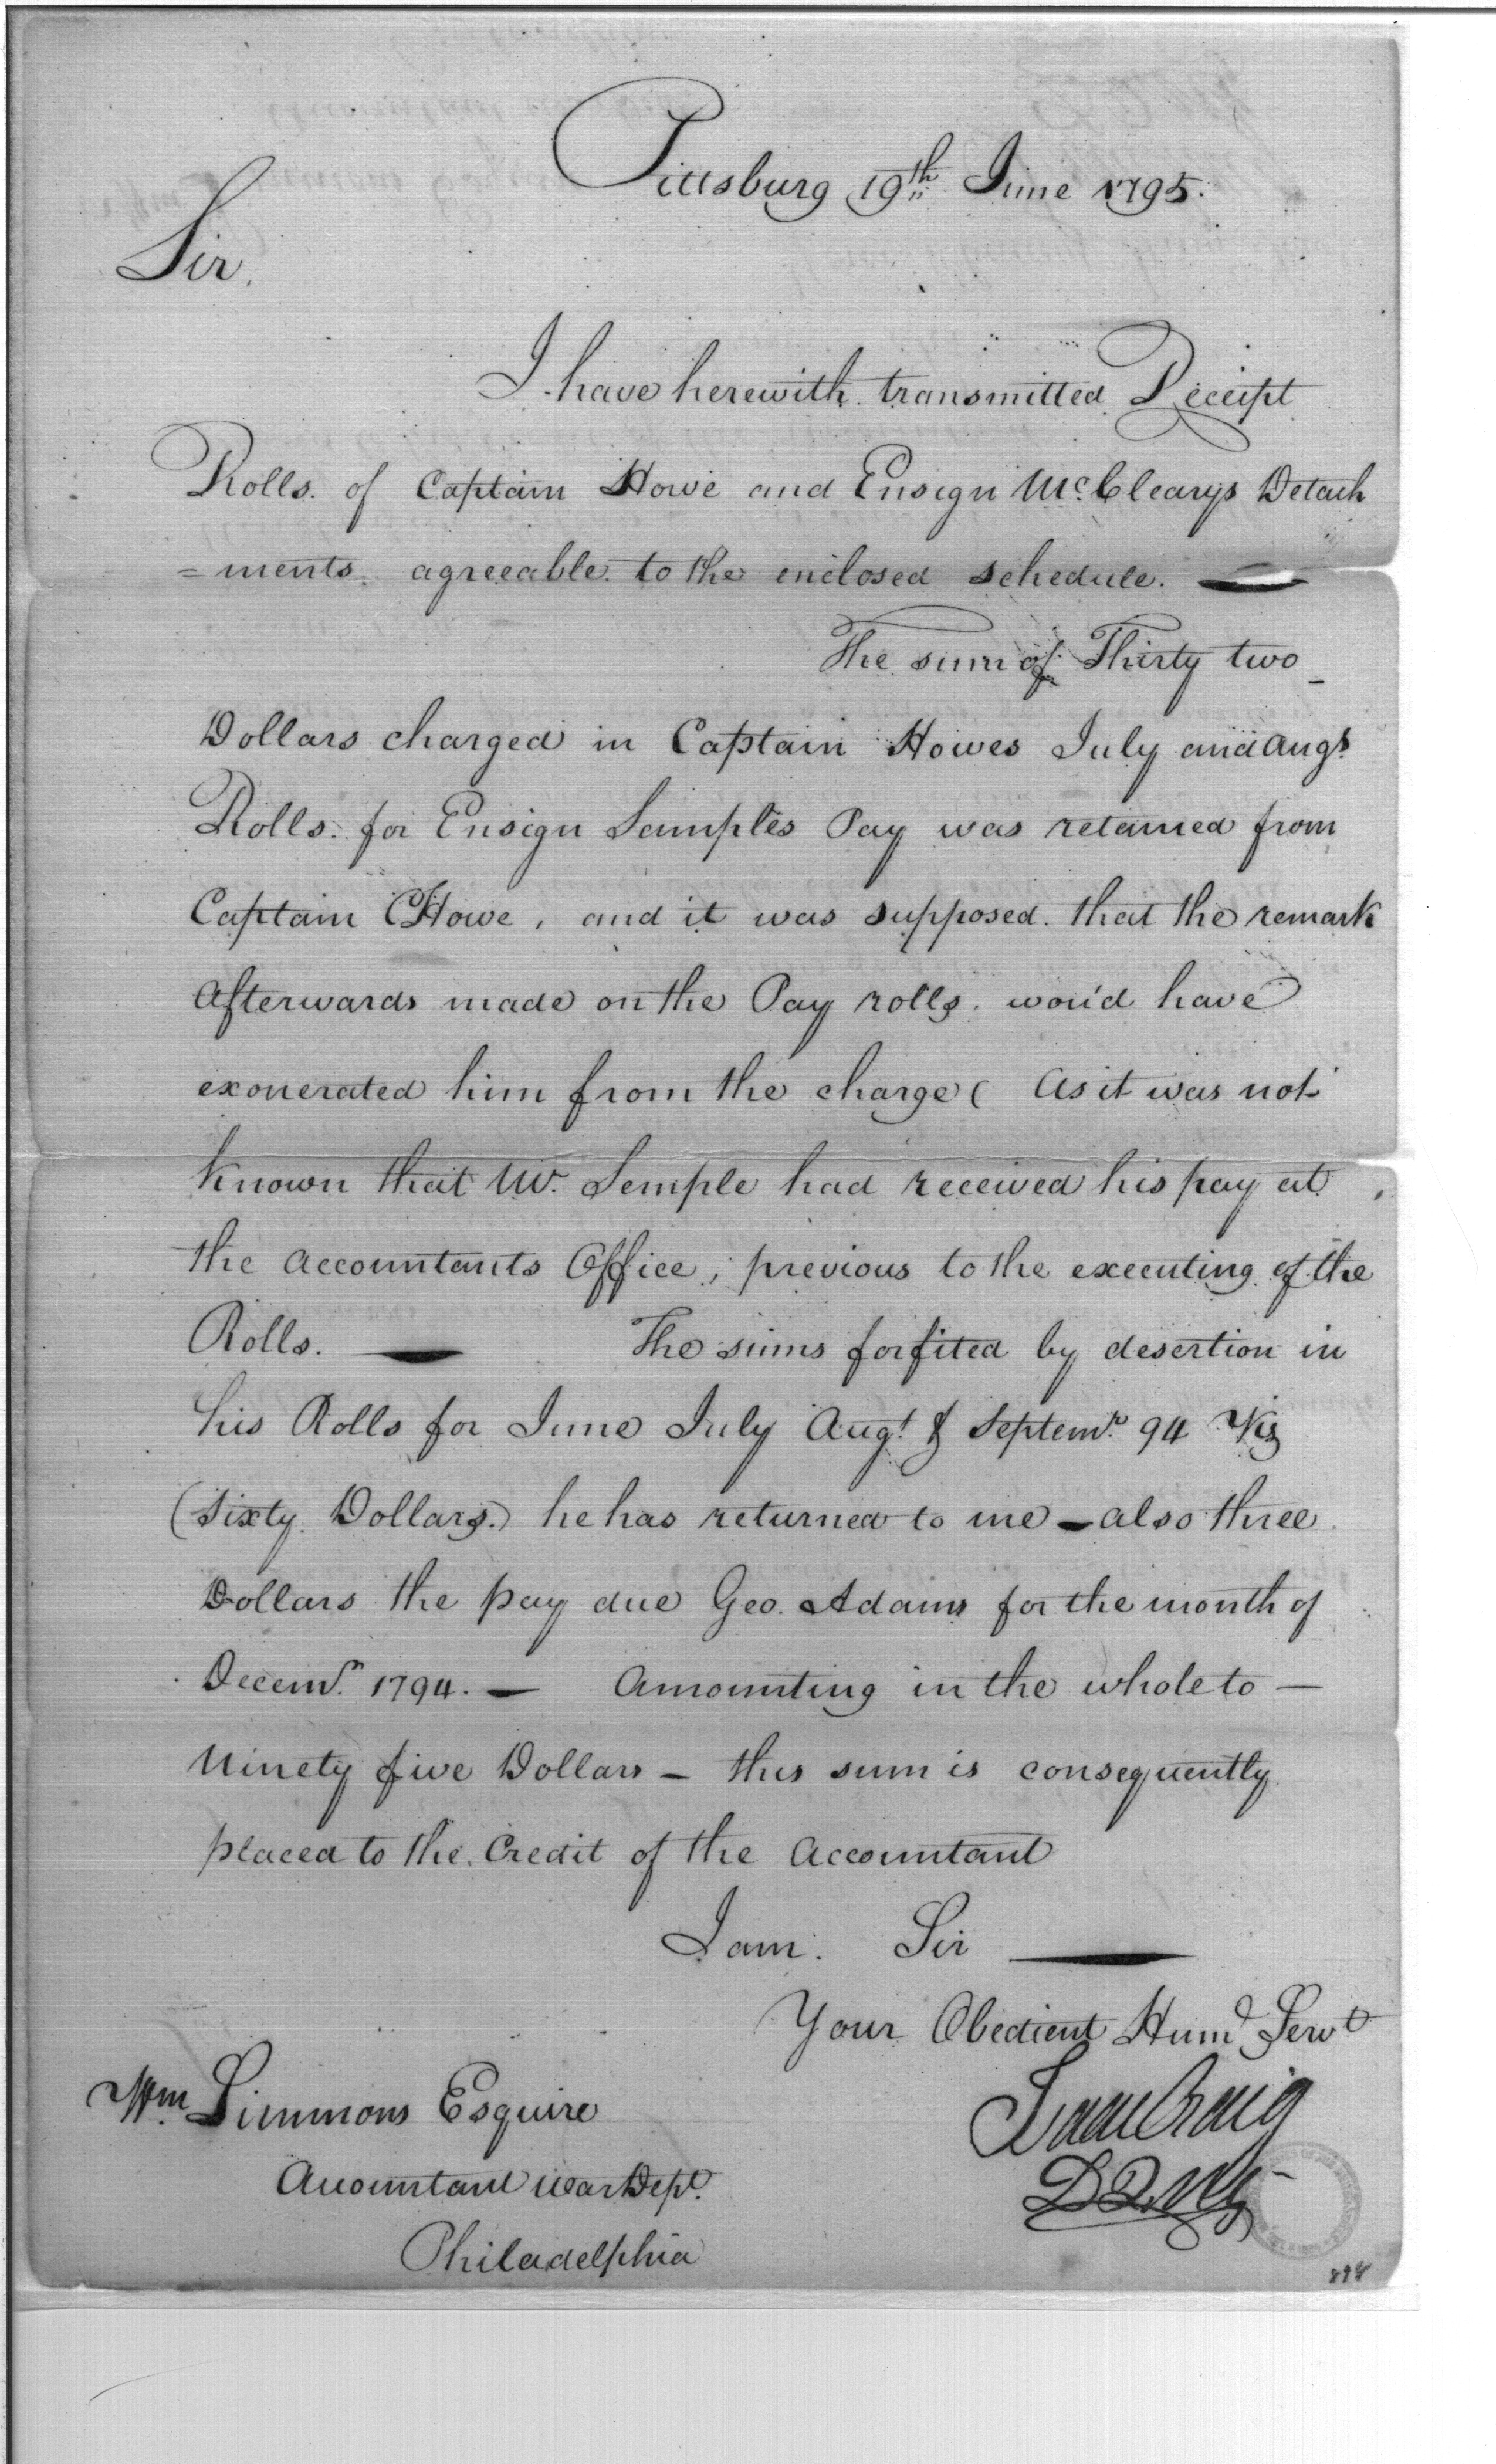 Pittsburg 19th June 1795.
Sir,
I have herewith transmitted Receipt
Rolls. of Captain Howe and Ensign McClearys Detach
=ments. agreeable to the enclosed schedule. —
The sum of Thirty two
Dollars charged in Captain Howes July and Augt
Rolls. for Ensign Samples Pay was retained from
Captain Howe, and it was supposed. that the remark
afterwards made on the Pay rolls. wou'd have
exonerated him from the charge ( As it was not
known that Mr. Semple had received his pay at
the Accountants Office, previous to the executing of the
Rolls. — The sums forfited by desertion in
his Rolls for June July Augt. & Septemr. 94 Viz
(Sixty Dollars.) he has returned to me — also three
Dollars the pay due Geo. Adams for the month of
Decemr. 1794. — Amounting in the whole to —
Ninety five Dollars — this sum is consequently
placed to the Credit of the Accountant
I am. Sir —
Your Obedient Hume Servt
Isaac Craig
DQMG
Wm Simmons Esquire
Accountant War Dept.
Philadelphia
898